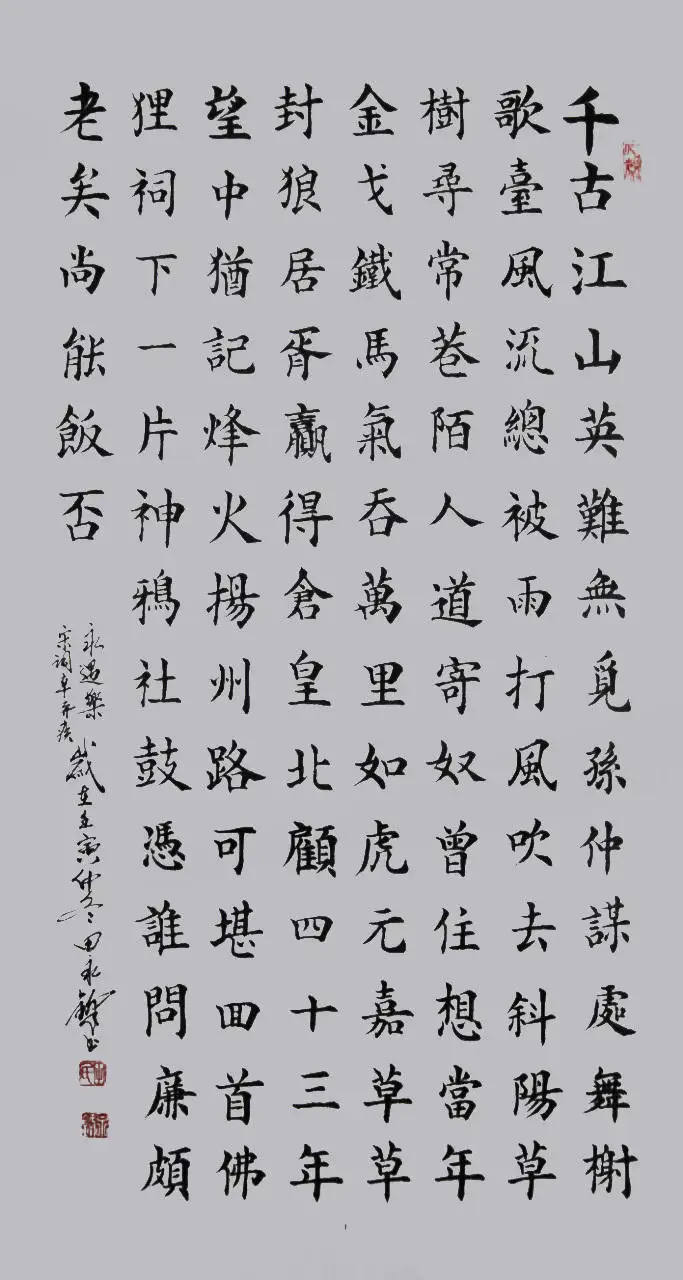 千古江山英難無覓孫仲謀處舞榭
歌臺風流總被雨打風吹去斜陽草
樹尋常巷陌人道寄奴曾住想當年
金戈鐵馬氣吞萬里如虎元嘉草草
封狼居胥贏得倉皇北顧四十三年
望中猶記烽火揚州路可堪囬首佛
狸祠下一片神鴉社鼓憑誰問廉頗
老矣尚能飯否
永遇樂
宋詞辛弃疾
歲在壬寅仲冬田永书